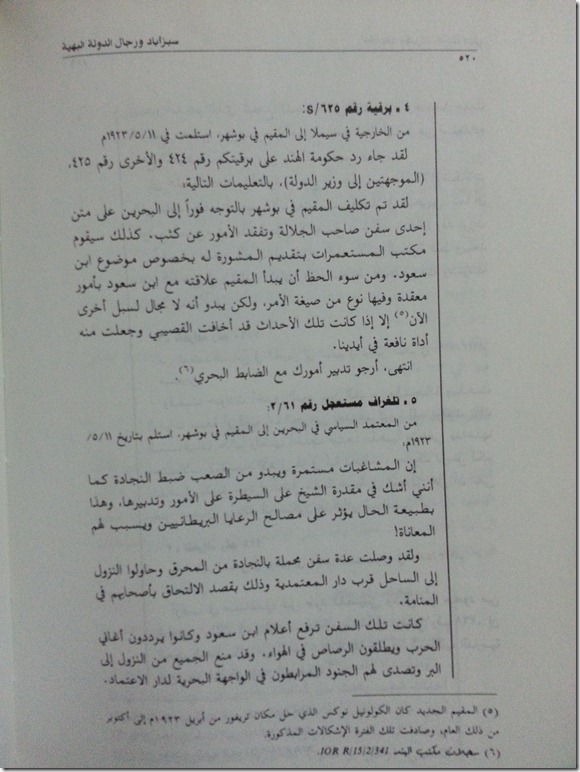 سبزاباد ورجال الدولة البهية
٥٢٠
٤ ـ برقية رقم S/٦٢٥:
من الخارجية في سيملا إلى المقيم في بوشهر، استلمت في ١٩٢٣/٥/١١م
لقد جاء رد حكومة الهند على برقيتكم رقم ٤٢٤ والأخرى رقم ٤٢٥،
(الموجهتين إلى وزير الدولة)، بالتعليمات التالية:
لقد تم تكليف المقيم في بوشهر بالتوجه فوراً إلى البحرين على متن
إحدى سفن صاحب الجلالة وتفقد الأمور عن كثب. كذلك سيقوم
مكتب المستعمرات بتقديم المشورة له بخصوص موضوع ابن
سعود. ومن سوء الحظ أن يبدأ المقيم علاقته مع ابن سعود بأمور
معقدة وفيها نوع من صيغة الأمر، ولكن يبدو أنه لا مجال لسبل أخرى
الآن(٥) إلا إذا كانت تلك الأحداث قد أخافت القصيبي وجعلت منه
أداة نافعة في أيدينا.
انتهى. أرجو تدبير أمورك مع الضابط البحري(٦).
٥ ـ تلغراف مستعجل رقم ٢/٦١:
من المعتمد السياسي في البحرين إلى المقيم في بوشهر، استلم بتاريخ ٥/١١/
١٩٢٣م:
إن المشاغبات مستمرة ويبدو من الصعب ضبط النجادة كما
أنني أشك في مقدرة الشيخ على السيطرة على الأمور وتدبيرها، وهذا
بطبيعة الحال يؤثر على مصالح الرعايا البريطانيين ويسبب لهم
المعاناة!
ولقد وصلت عدة سفن محملة بالنجادة من المحرق وحاولوا النزول
إلى الساحل قرب دار المعتمدية وذلك بقصد الالتحاق بأصحابهم في
المنامة.
كانت تلك السفن ترفع أعلام ابن سعود وكانوا يرددون أغاني
الحرب ويطلقون الرصاص في الهواء. وقد منع الجميع من النزول إلى
البر وتصدى لهم الجنود المرابطون في الواجهة البحرية لدار الاعتماد.
(٥) المقيم الجديد كان الكولونيل نوكس الذي حل مكان تريفور من أبريل ١٩٢٣م إلى أكتوبر
من ذلك العام، وصادفت تلك الفترة الإشكالات المذكورة.
(٦) سجلات مكتب الهند IOR R/15/2/341.